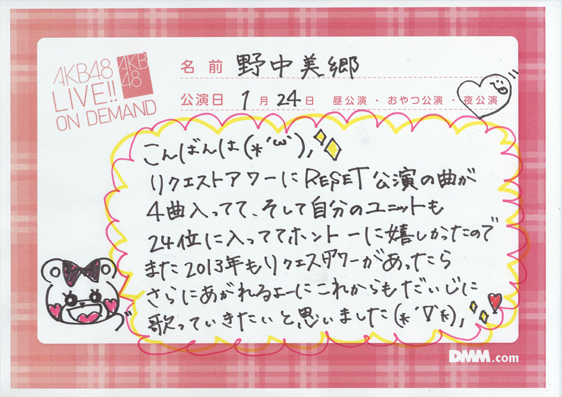 AKB48
LIVE!!
ON DEMAND
AKB
48
名前 野中美郷
公演日 1月24日 昼公演・おやつ公演・夜公演
こんばんは(*´ω`)ノ
リクエストアワーにRESET公演の曲が
4曲入ってて、そして自分のユニットも
24位に入っててホントーに嬉しかったので
また2013年もリクエスアワーがあったら
さらにあがれるよーにこれからもだいじに
歌っていきたいと思いました(*´∇`*)ノ
DMM.com